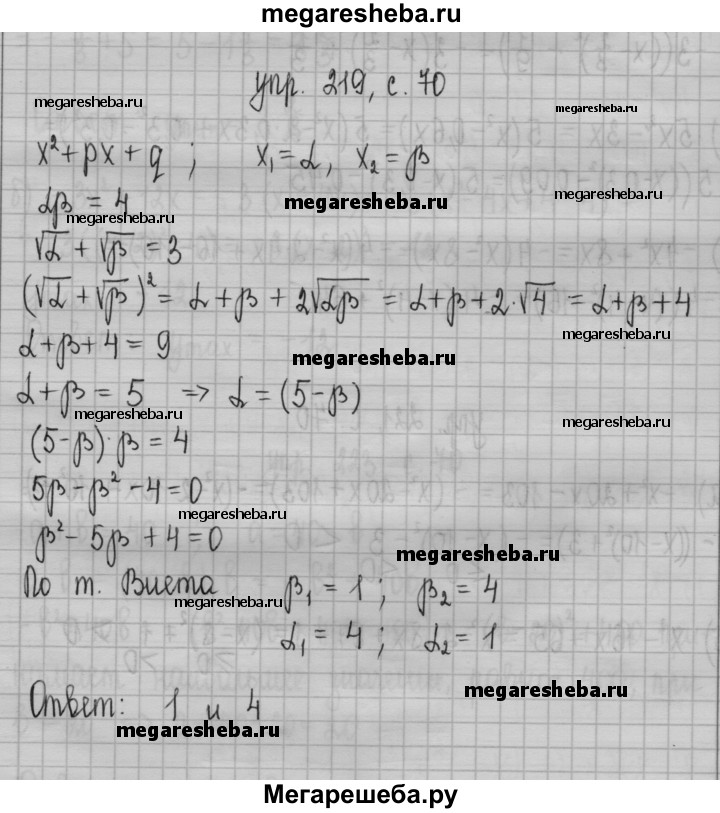 megaresheba.ru
упр. 219, с. 70
megaresheba.ru megaresheba.ru
x² + px + q ; x₁ = α, x₂ = β
megaresheba.ru
αβ = 4 megaresheba.ru
megaresheba.ru
√α + √β = 3
megaresheba.ru
(√α + √β)² = α + β + 2√αβ = α + β + 2·√4 = α + β + 4
megaresheba.ru
α + β + 4 = 9 megaresheba.ru
α + β = 5 => α = (5 - β)
megaresheba.ru megaresheba.ru
(5 - β)·β = 4
5β - β² - 4 = 0
megaresheba.ru
β² - 5β + 4 = 0 megaresheba.ru
По т. Виета β₁ = 1 ; β₂ = 4
megaresheba.ru
α₁ = 4 ; α₂ = 1
megaresheba.ru
Ответ: 1 и 4
megaresheba.ru
Мегарешеба.ру